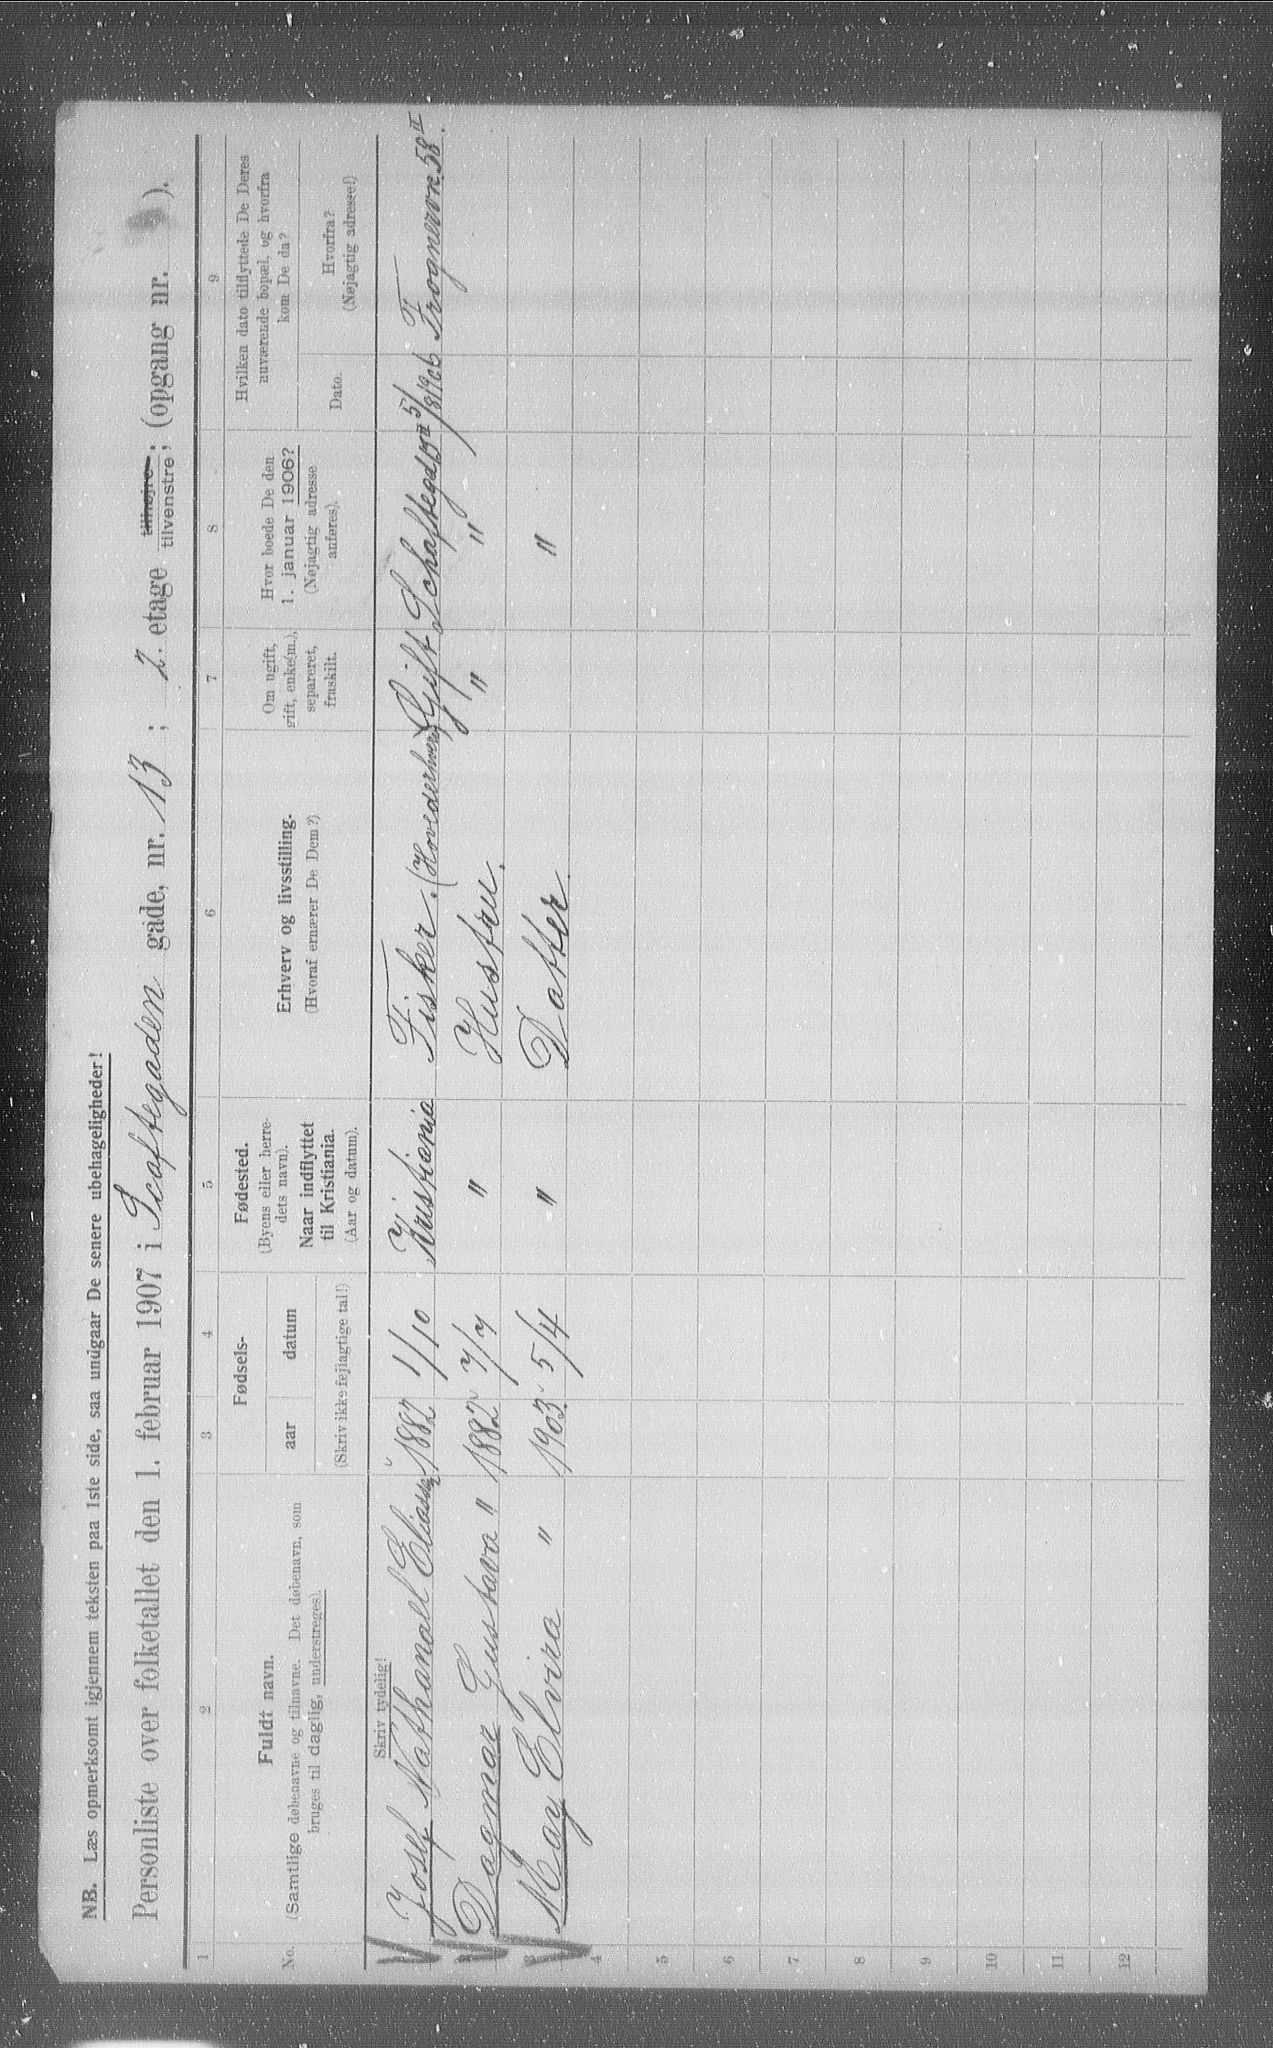 NB. Læs opmerksomt igjennem teksten paa 1ste side, saa undgaar De senere ubehageligheder!
Personliste over folketallet den 1. februar 1907 i Scaftegaden gade, nr. 13 ; 2. etage tilhøjre tilvenstre ; (opgang nr. ).
1 2 3 4 5 6 7 8 9
No.
Fuldt navn.
(Samtlige døbenavne og tilnavne. Det døbenavn, som
bruges til daglig, understreges).
Fødsels-
aar datum
(Skriv ikke fejlagtige tal!)
Fødested.
(Byens eller herre-
dets navn).
Naar indflyttet
til Kristiania.
(Aar og datum).
Erhverv og livsstilling.
(Hvoraf ernærer De Dem?)
Om ugift,
gift, enke(m.),
separeret,
fraskilt.
Hvor boede De den
1. januar 1906?
(Nøjagtig adresse
anføres).
Hvilken dato tilflyttede De Deres
nuværende bopæl, og hvorfra
kom De da?
Dato.
Hvorfra?
(Nøjagtig adresse!)
Skriv tydelig!
Josef Nathanall Eliassen 1882 1/10 Kristiania Fisker. (Hovederhverv) Gift Schaftegd 13 II 5/8 1906 Frognervn 58 II.
Dagmar Gustava " 1882 7/7 " Hustru. " "
3 May Elvira " 1903 5/4 " Datter. "
4
5
6
7
8
9
10
11
12